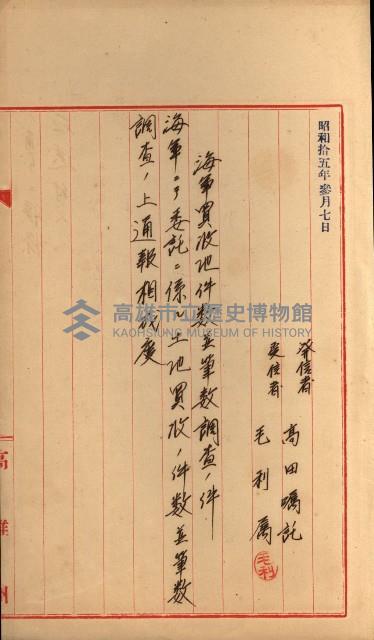 昭和拾五年參月七日
發信者 高田囑託
受信者 毛利属
毛利
海軍買收地件数並筆数調査ノ件
海軍ヨリ委託ニ係ル土地買收ノ件数並筆数
調査ノ上通報相成度
高雄州
高雄市立歷史博物館
KAOHSIUNG MUSEUM OF HISTORY